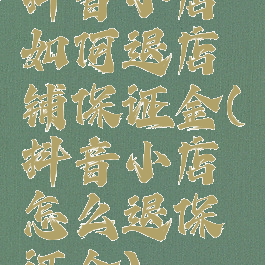 抖音小店
如何退店
铺保证金(
抖音小店
怎么退保
证金)